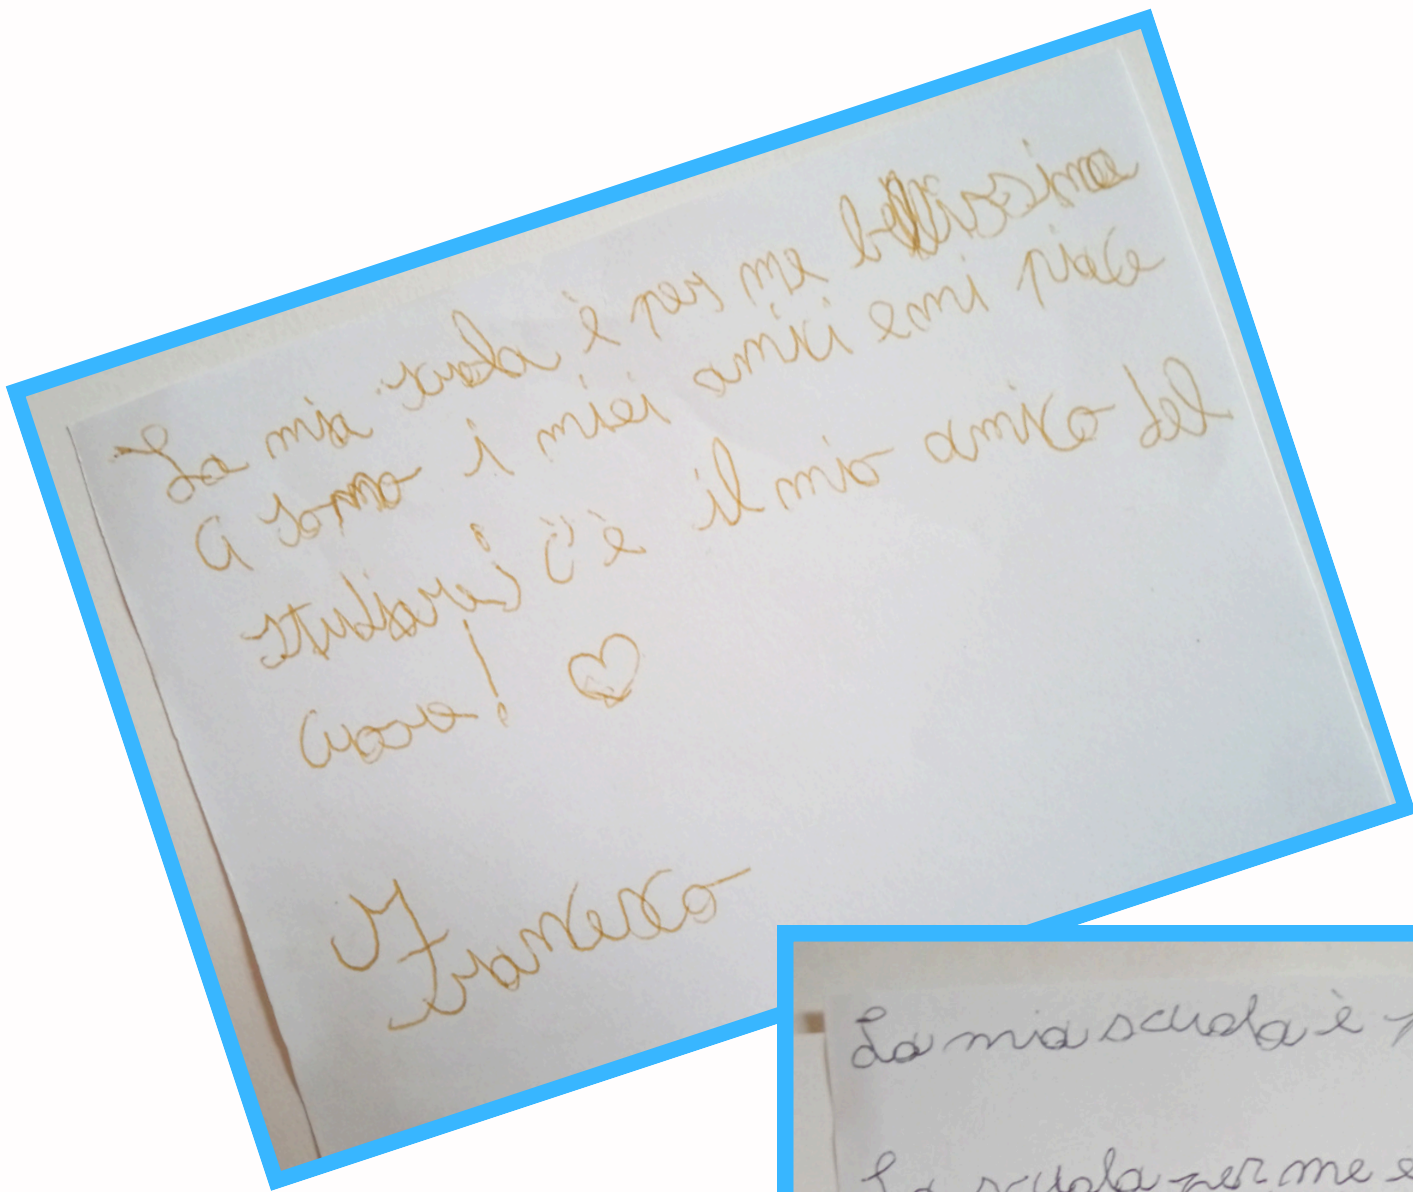 La mia scuola è per me bellissima
Ci sono i miei amici e mi piace
studiare; c'è il mio amico del
cuore!
Francesco
La mia scuola è
La scuola per me e